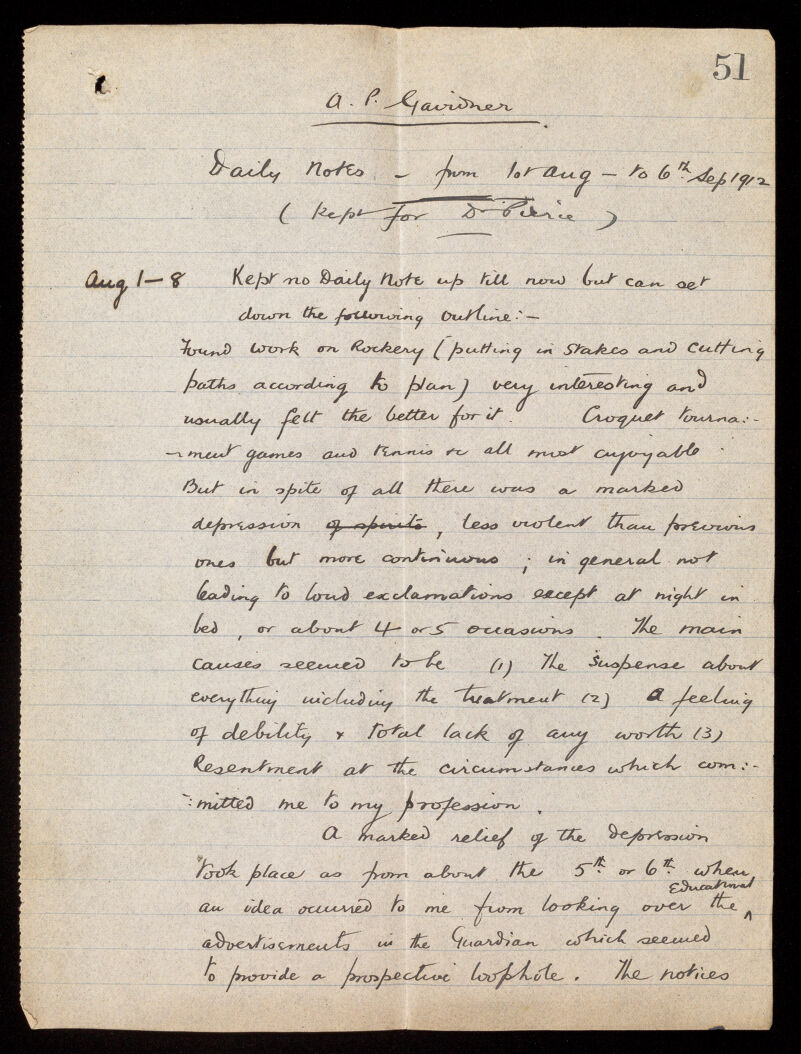 51
A. P. Gairdner
Daily Notes – from 1st Aug – to 6th Sep 1912
( kept for Dr Pierce )
Aug 1–8 Kept no Daily Note up till now but can set
down the following outline:–
Found work on Rockery (putting in stakes and cutting
paths according to plan) very interesting and
usually felt the better for it. Croquet tourna:-
-ment games and tennis &c all most enjoyable.
But in spite of all there was a marked
depression of spirits, less violent than previous
ones but more continuous; in general not
leading to loud exclamations except at night in
bed, or about 4 or 5 occasions. The main
causes seemed to be (1) The suspense about
everything including the treatment (2) A feeling
of debility & total lack of any worth (3)
Resentment at the circumstances which com:-
-:mitted me to my profession.
A marked relief of the depression
took place as from about the 5th or 6th when
an idea occurred to me from looking over the Educational
advertisements in the Guardian which seemed
to provide a prospective loophole. The notices